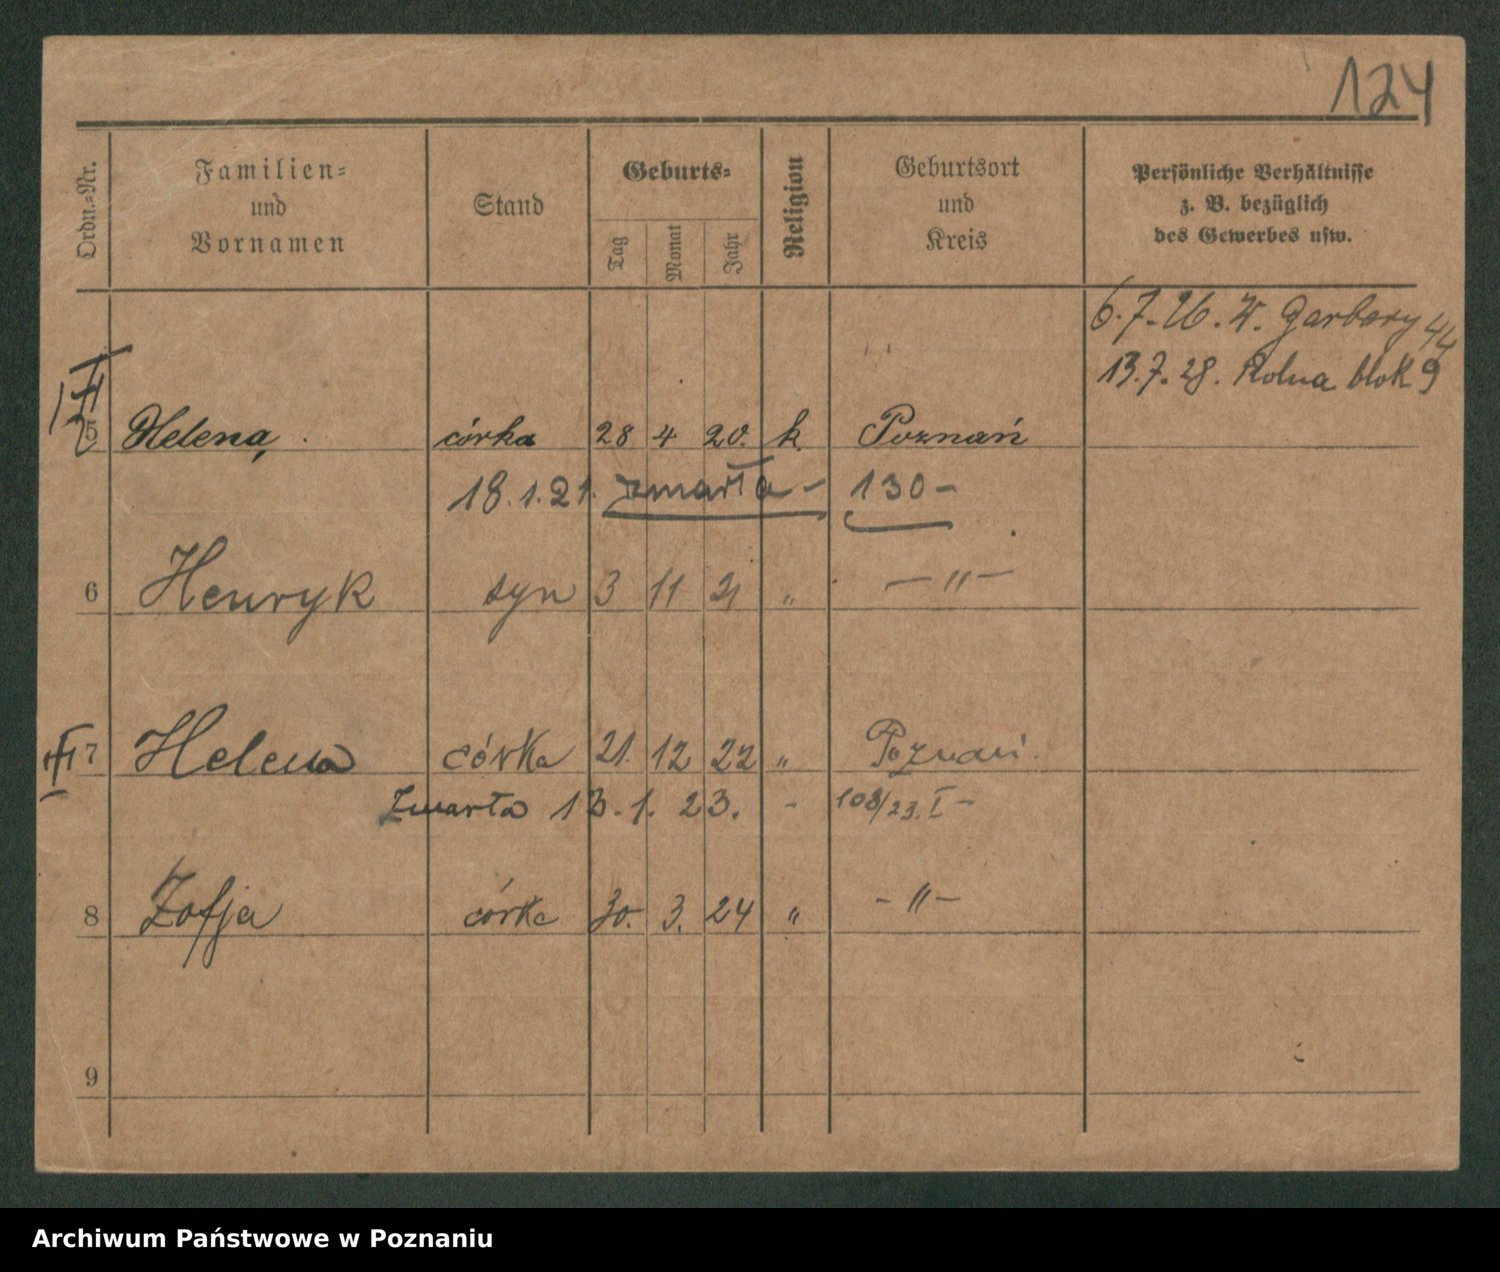 124
Ordn.-Nr.
Familien-
und
Vornamen
Stand
Geburts-
Tag
Monat
Jahr
Religion
Geburtsort
und
Kreis
Persönliche Verhältnisse
z. B. bezüglich
des Gewerbes usw.
6.7.26. W. Garbary 44
13.7.28. Rolna blok 9
5 Helena, córka 28 4 20. k. Poznań
18.1.21. zmarła - 130 -
6 Henryk syn 3 11 21 " - " -
7 Helena córka 21. 12 22 " Poznań
Zmarła 13.1.23. - 108/23. I -
8 Zofja córka 30. 3. 24 " - " -
9
Archiwum Państwowe w Poznaniu